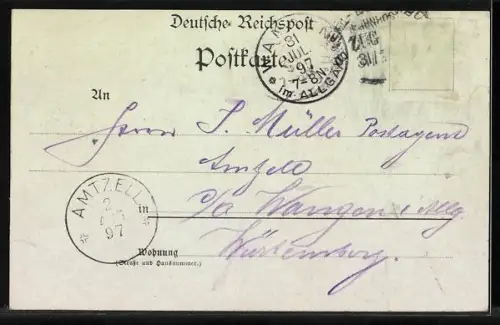 Deutsche Reichspost
Postkarte
WANGEN
31
JUL
97
7-8N.
im ALLGÄU
An
Herrn J. Müller Postagent
Amtzell
AMTZELL
2
AUG
97
in
c/o Wangen i/Allg.
Wohnung
(Straße und Hausnummer.)
Württemberg.